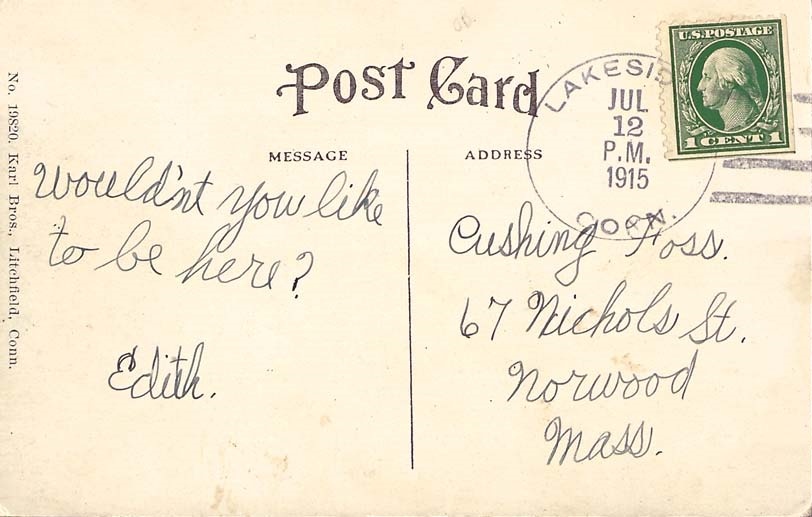 Post Card
MESSAGE
ADDRESS
No. 19820. Karl Bros., Litchfield, Conn.
Wouldn't you like
to be here?
Edith.
LAKESIDE
JUL
12
P.M.
1915
CONN.
U.S. POSTAGE
1 CENT 1
Cushing Foss.
67 Nichols St.
Norwood
Mass.